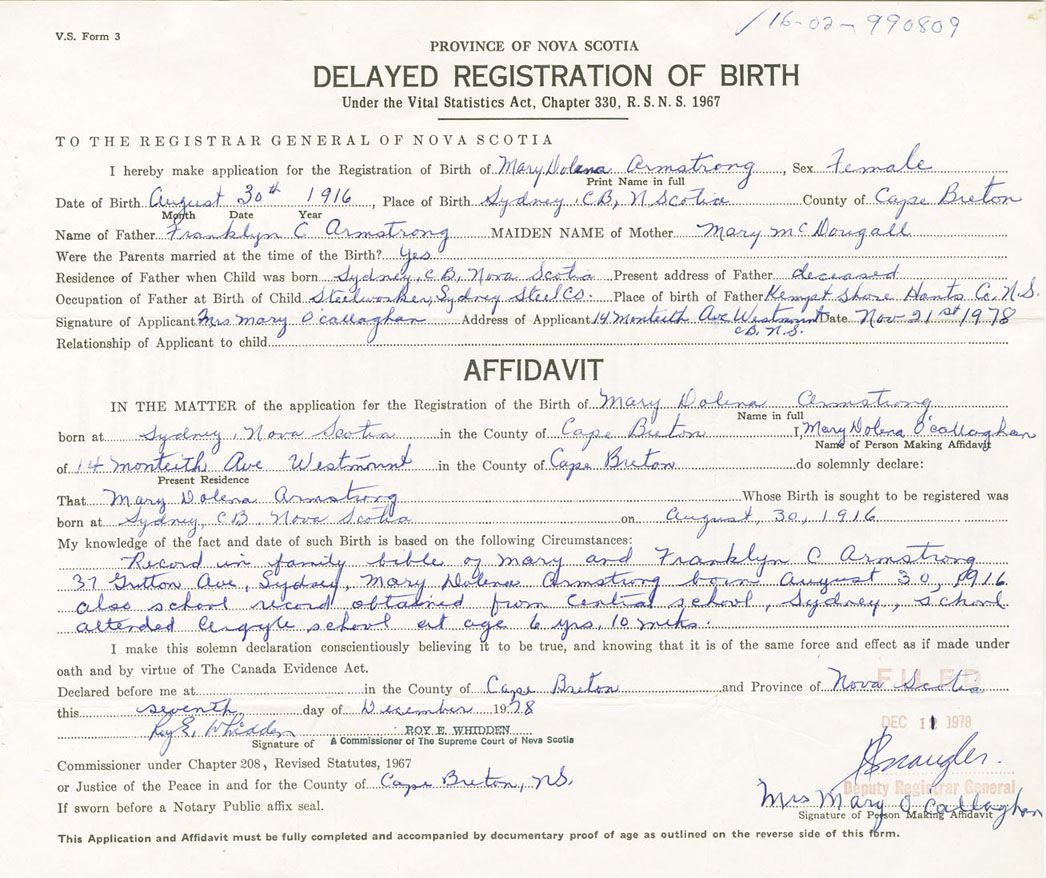 /16-02-990809
V.S. Form 3
PROVINCE OF NOVA SCOTIA
DELAYED REGISTRATION OF BIRTH
Under the Vital Statistics Act, Chapter 330, R.S.N.S. 1967
TO THE REGISTRAR GENERAL OF NOVA SCOTIA
I hereby make application for the Registration of Birth of Mary Dolena Armstrong, Sex Female
Print Name in full
Date of Birth August 30th 1916, Place of Birth Sydney, C.B, N. Scotia County of Cape Breton
Month Date Year
Name of Father Franklyn C Armstrong MAIDEN NAME of Mother Mary McDougall
Were the Parents married at the time of the Birth? Yes
Residence of Father when Child was born Sydney, C.B, Nova Scotia Present address of Father deceased
Occupation of Father at Birth of Child Steelworker, Sydney Steel Co. Place of birth of Father Kempt Shore Hants Co. N.S.
Signature of Applicant Mrs Mary O'callaghan Address of Applicant 14 Monteith Ave Westmount Date Nov 21st 1978
C.B. N.S.
Relationship of Applicant to child
AFFIDAVIT
IN THE MATTER of the application for the Registration of the Birth of Mary Dolena Armstrong
Name in full
born at Sydney, Nova Scotia in the County of Cape Breton I, Mary Dolena O'callaghan
Name of Person Making Affidavit
of 14 Monteith Ave Westmount in the County of Cape Breton do solemnly declare:
Present Residence
That Mary Dolena Armstrong Whose Birth is sought to be registered was
born at Sydney, C.B, Nova Scotia on August, 30, 1916
My knowledge of the fact and date of such Birth is based on the following Circumstances:
Record in family bible of Mary and Franklyn C Armstrong
37 Ave, Sydney, Mary Dolena Armstrong born August 30, 1916
also school record obtained from Central school, Sydney, school
attended Argyle school at age 6 yrs, 10 mths.
I make this solemn declaration conscientiously believing it to be true, and knowing that it is of the same force and effect as if made under
oath and by virtue of The Canada Evidence Act.
FILED
Declared before me at in the County of Cape Breton and Province of Nova Scotia
this seventh day of December 1978
DEC 11 1978
Roy E. Whidden ROY E. WHIDDEN
Signature of A Commissioner of The Supreme Court of Nova Scotia
Commissioner under Chapter 208, Revised Statutes, 1967
or Justice of the Peace in and for the County of Cape Breton, N.S.
Deputy Registrar General
Mrs Mary O'Callaghan
If sworn before a Notary Public affix seal.
Signature of Person Making Affidavit
This Application and Affidavit must be fully completed and accompanied by documentary proof of age as outlined on the reverse side of this form.